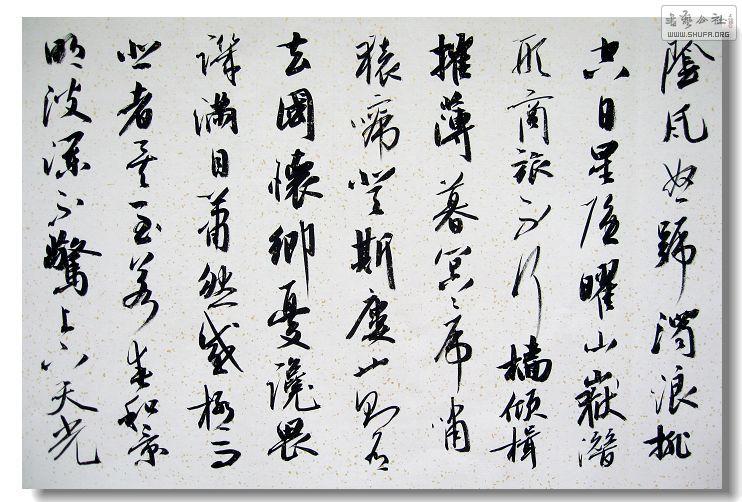 书艺公社
WWW.SHUFA.ORG
陰風怒號濁浪排
空日星隱曜山嶽潛
形商旅不行檣傾楫
摧薄暮冥冥虎嘯
猿啼登斯樓也則有
去國懷鄉憂讒畏
譏滿目蕭然感極而
悲者矣至若春和景
明波瀾不驚上下天光